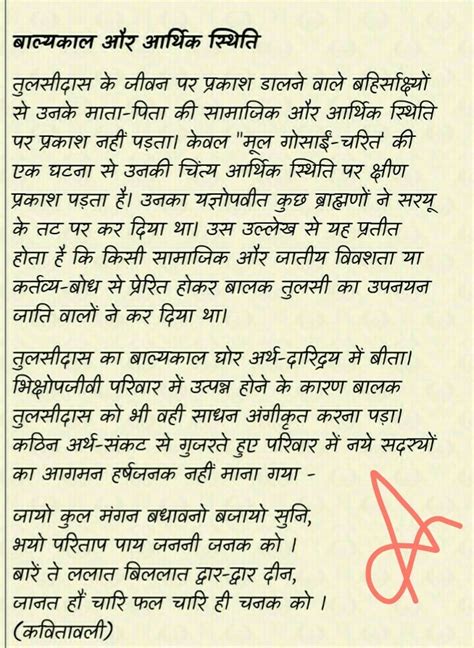 बाल्यकाल और आर्थिक स्थिति
तुलसीदास के जीवन पर प्रकाश डालने वाले बहिर्साक्ष्यों
से उनके माता-पिता की सामाजिक और आर्थिक स्थिति
पर प्रकाश नहीं पड़ता। केवल "मूल गोसाईं-चरित' की
एक घटना से उनकी चिंत्य आर्थिक स्थिति पर क्षीण
प्रकाश पड़ता है। उनका यज्ञोपवीत कुछ ब्राह्मणों ने सरयू
के तट पर कर दिया था। उस उल्लेख से यह प्रतीत
होता है कि किसी सामाजिक और जातीय विवशता या
कर्तव्य-बोध से प्रेरित होकर बालक तुलसी का उपनयन
जाति वालों ने कर दिया था।
तुलसीदास का बाल्यकाल घोर अर्थ-दारिद्रय में बीता।
भिक्षोपजीवी परिवार में उत्पन्न होने के कारण बालक
तुलसीदास को भी वही साधन अंगीकृत करना पड़ा।
कठिन अर्थ-संकट से गुजरते हुए परिवार में नये सदस्यों
का आगमन हर्षजनक नहीं माना गया -
जायो कुल मंगन बधावनो बजायो सुनि,
भयो परिताप पाय जननी जनक को ।
बारें ते ललात बिललात द्वार-द्वार दीन,
जानत हौं चारि फल चारि ही चनक को ।
(कवितावली)